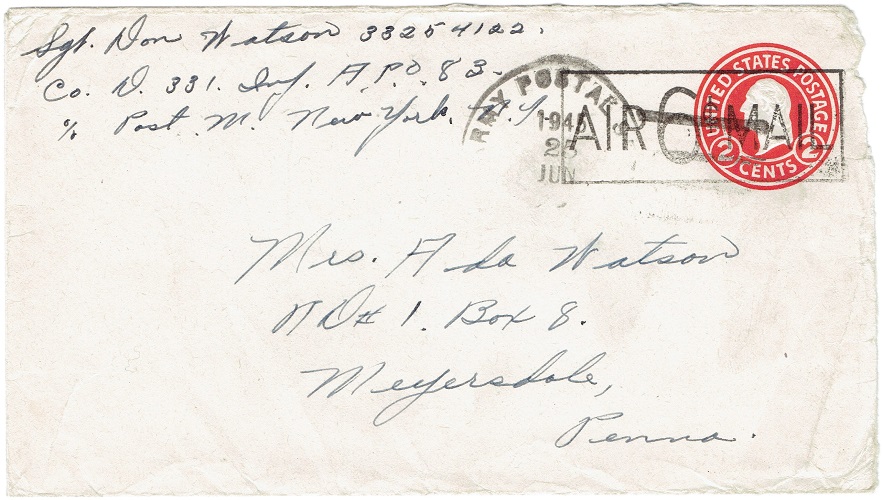 Sgt. Don Watson 33254122.
Co. D. 331. Inf. APO 83.
% Post. M. New York, N.Y.
ARMY POSTAL
1945
JUN
AIR 6¢ MAIL
UNITED STATES POSTAGE
2 CENTS 2
Mrs. Ada Watson
RD# 1. Box 8.
Meyersdale,
Penna.